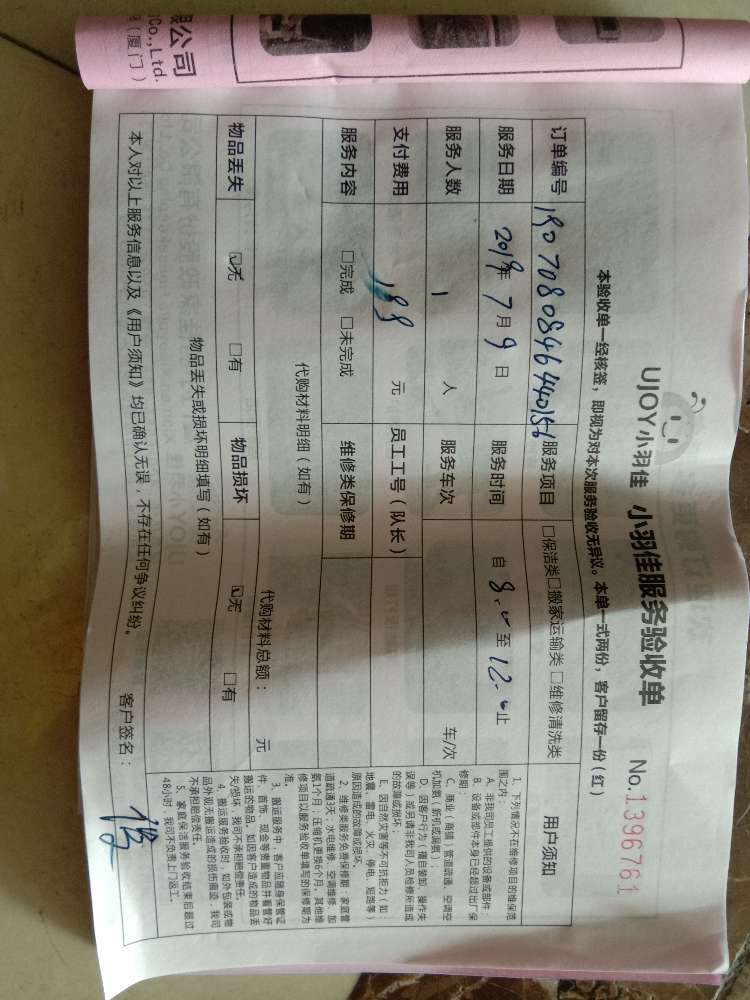 限公司
Co.,Ltd.
（厦门）
UJOY小羽佳 小羽佳服务验收单 No.1396761
本验收单一经核签，即视为对本次服务验收无异议。本单一式两份，客户留存一份（红）
订单编号 1907080846440156 服务项目 □保洁类□搬家运输类 □维修清洗类
服务日期 2019年 7 月 9 日 服务时间 自 8.0 至 12.0 止
服务人数 1 人 服务车次 车/次
支付费用 199 元 员工工号（队长）
服务内容 □完成 □未完成 维修类保修期
代购材料明细（如有） 代购材料总额： 元
物品丢失 ☑无 □有 物品损坏 ☑无 □有
物品丢失或损坏明细填写（如有）
本人对以上服务信息以及《用户须知》均已确认无误，不存在任何争议纠纷。 客户签名：
用户须知
1、下列情况不在维修项目的维保范
围之内：
A、非我司员工提供的设备或部件；
B、设备或部件本身已经超过出厂保
修期；
C、商业（商铺）管道疏通、空调空
机加氨（拆机或漏氨）；
D、因客户行为（擅自装卸、操作失
误等）或另请非我司人员检修所造成
的故障或损坏；
E、因自然灾害等不可抗拒力（如：
地震、雷电、火灾、停电、短路等）
原因造成的故障或损坏。
2、维修类服务免费保修期：家庭管
道疏通3天；水电维修、空调维修、加
氨1个月；压缩机更换6个月，其他维
修项目以服务验收单填写的保修期为
准。
3、搬运服务中，客户应随身保管证
件、首饰、现金等贵重物品并看管好
搬运的物品，如因客户造成的物品丢
失/损坏，我司不承担赔偿责任。
4、搬运服务验收时，如外包装或物
品外观无搬运造成的损伤痕迹，我司
不承担赔偿责任。
5、家庭保洁服务验收结束后超过
48小时，我司不负责上门返工。